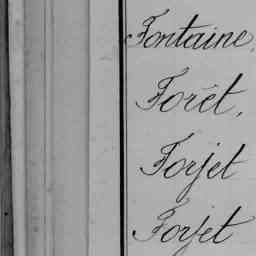 Fontaine,
Forêt,
Forjet
Forjet